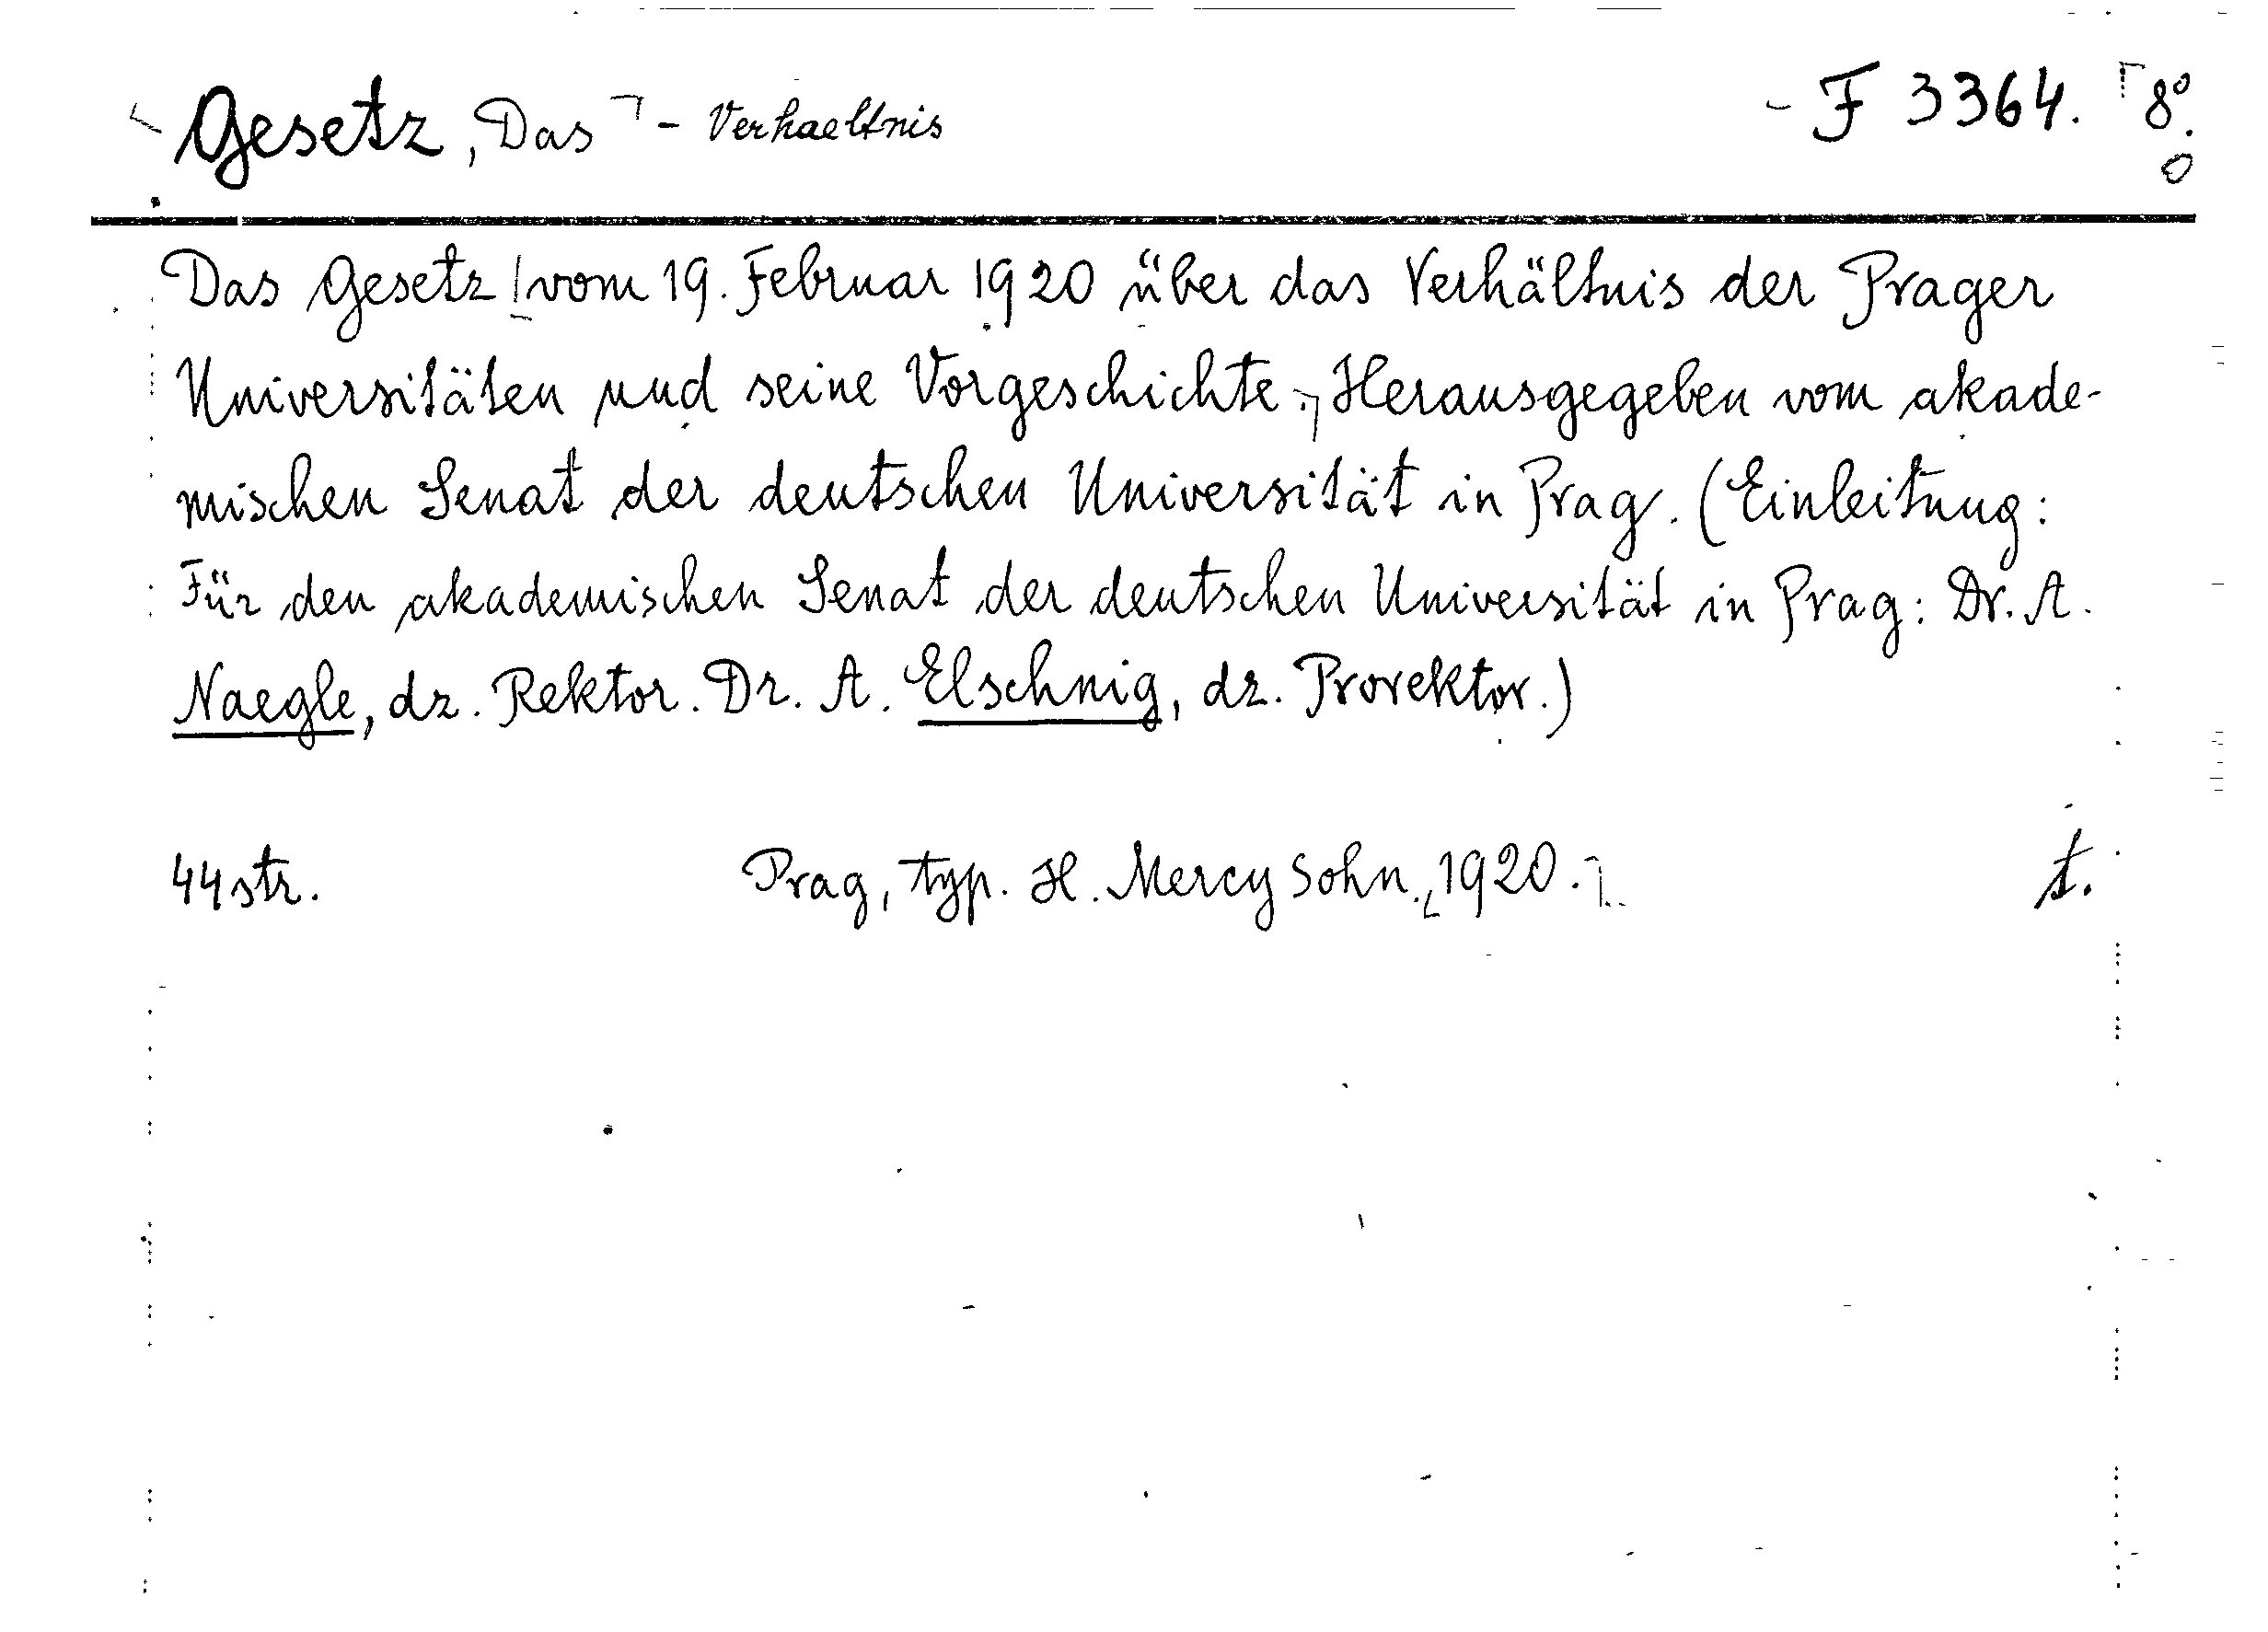 Gesetz, Das - Verhaeltnis F 3364. 8°.
Das Gesetz vom 19. Februar 1920 über das Verhältnis der Prager
Universitäten und seine Vorgeschichte. Herausgegeben vom akade-
mischen Senat der deutschen Universität in Prag. (Einleitung:
Für den akademischen Senat der deutschen Universität in Prag: Dr. A.
Naegle, dz. Rektor. Dr. A. Elschnig, dz. Prorektor.)
44 str. Prag, typ. H. Mercy Sohn, 1920. t.